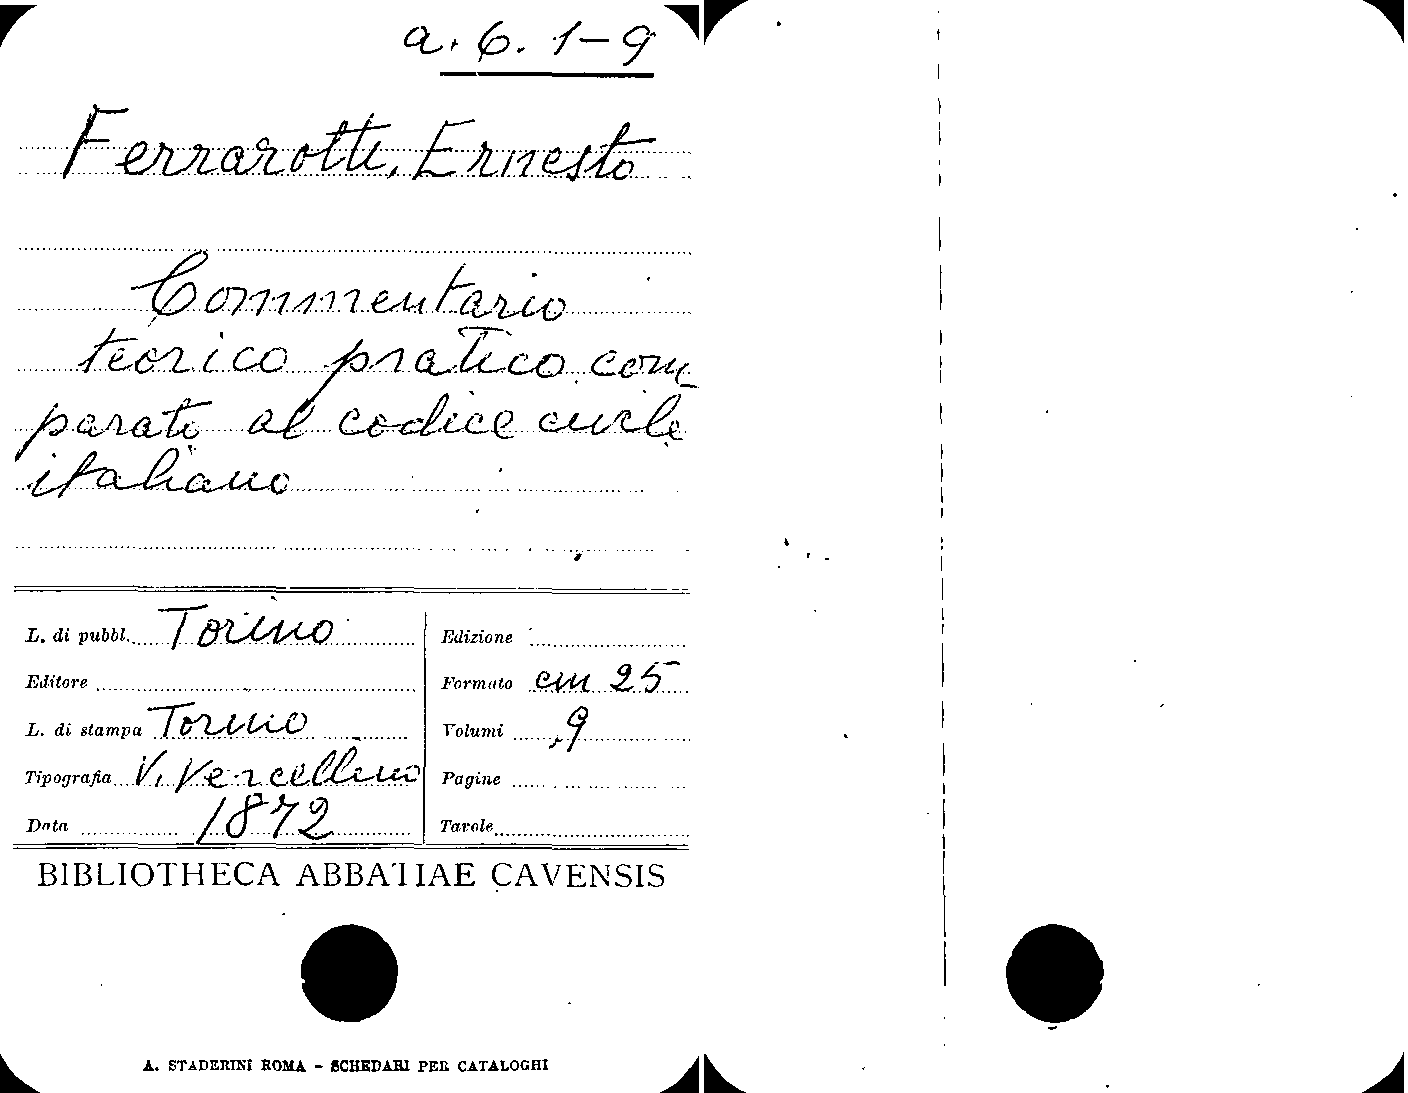 a. 6. 1-9
Ferrarotti, Ernesto
Commentario
teorico pratico com
parato al codice civile
italiano
L. di pubbl. Torino
Editore
L. di stampa Torino
Tipografia V. Vercellino
Data 1872
Edizione
Formato cm 25
Volumi 9
Pagine
Tavole
BIBLIOTHECA ABBATIAE CAVENSIS
A. STADERINI ROMA - SCHEDARI PER CATALOGHI